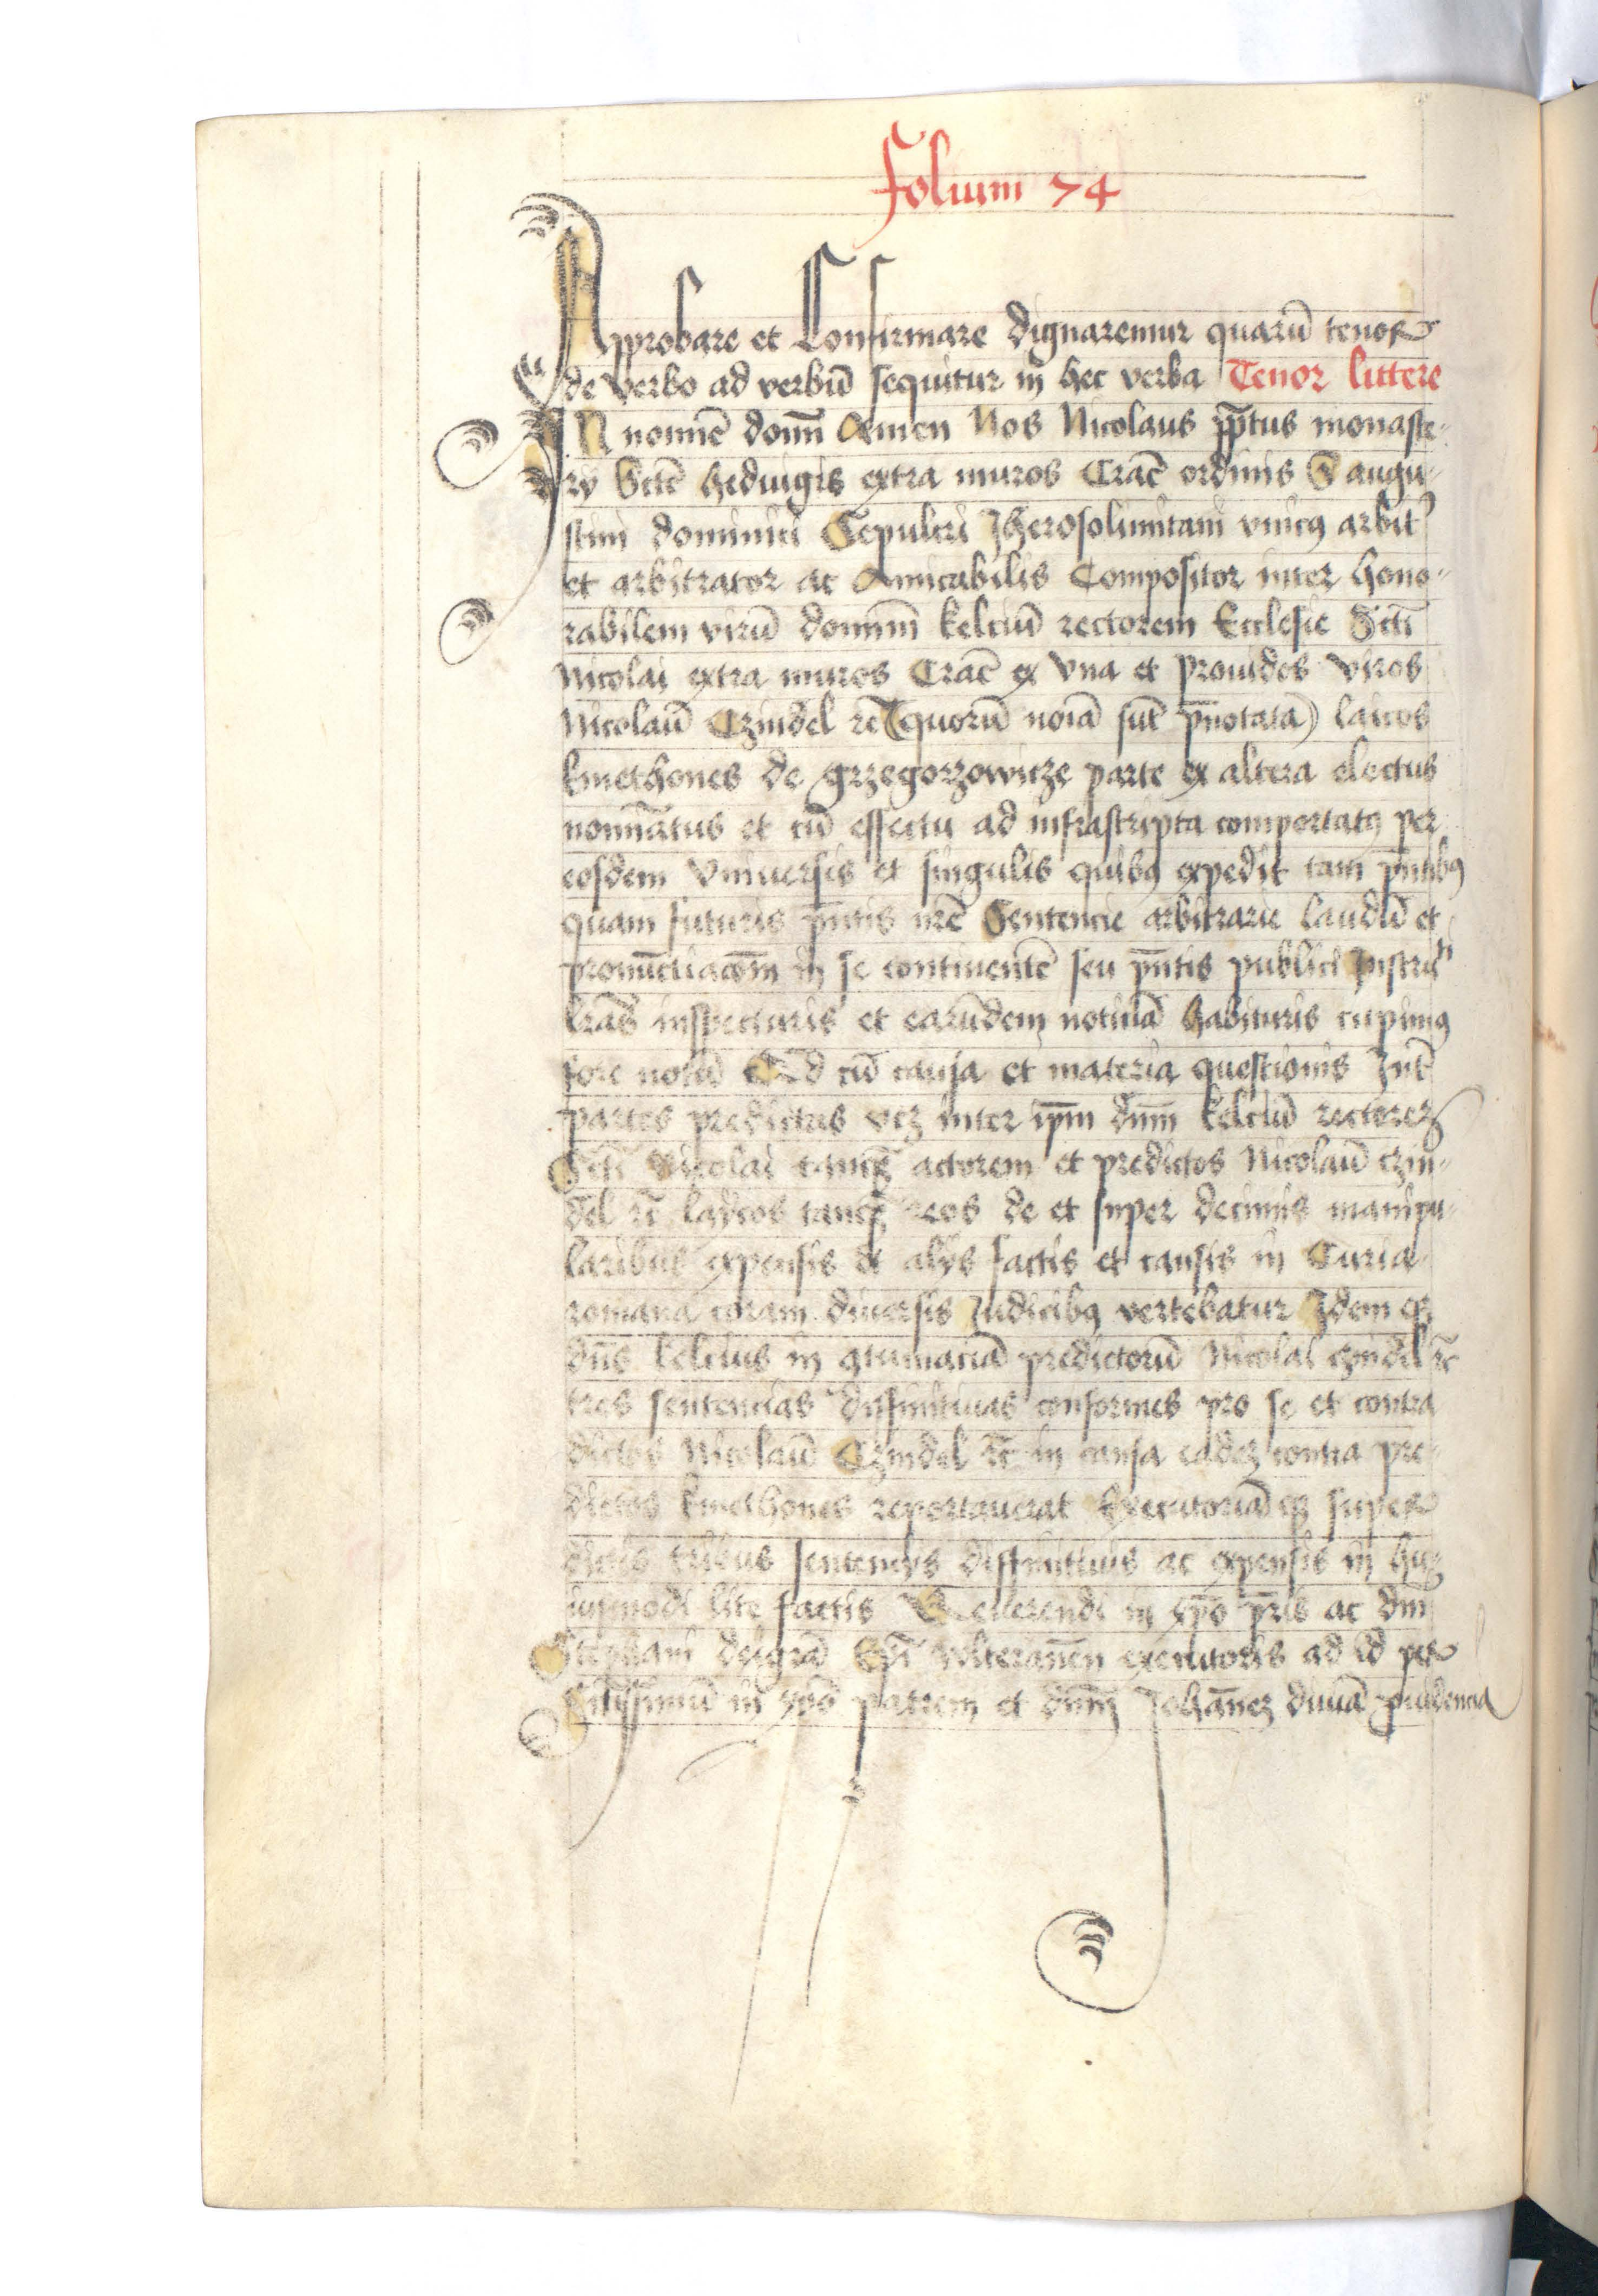 folium 74
Approbare et Confirmare dignaremur quarū tenor
de verbo ad verbū sequitur in hec verba Tenor littere
IN nomīe domī Amen Nos Nicolaus pp̄tus monaste-
ry Sctē hedwigis extra muros Cracͦ ordinis S augu-
stini dominici Sepulcri Jherosolimitani vnicꝰ arbitꝰ
et arbitrator ac Amicabilis Compositor inter hono-
rabilem virū dominū kelciū rectorem Ecclesie Scti
Nicolai extra muros Cracͦ ex vna et prouidos viros
Nicolaū Czindel rc̄ (quorū noīa sūt p̄notata) laicos
kmethones de grzegorzowicze parte ex altera electus
nomīatus et cū effectu ad infrascripta comportatꝰ per
eosdem vniuersis et singulis quibꝰ expedit tam p̄ntibꝰ
quam futuris p̄ntis nr̄e Sentencie arbitrarie laudū et
pronūctiacōm in se continentē seu p̄ntis publici Instrūti
lrās inspecturis et earūdem noticiā habituris cupimꝰ
fore notū cū causa et materia questionis Int̄
partes predictas vcz inter ip̄m dnm̄ kelciū rectorez
Scti Nicolai tanqꝫ actorem et predictos Nicolaū czin-
del rc̄ laycos tanqꝫ reos de et super decimis manipu-
laribus expensis et alijs factis et causis in Curia
romana coram diuersis Iudicibꝰ vertebatur Idem qꝫ
dn̄s kelcius in ꝯtumaciā predictorū Nicolai czindel rc̄
tres sentencias diffinitiuas conformes pro se et contra
dictos Nicolaū Czindel rc̄ in causa eadez contra pre-
dictos kmethones reportauerat Executoriā qꝫ super
dictis tribus sentencijs diffinitiuis ac expensis in hu-
iusmodi lite factis Reuerendi in xp̄o pr̄is ac dnī
Stephani deigrā Ep̄i wlteranēn executoris ad id per
Sctissimū in xp̄o patrem et dnm̄ Johannez diuiā prudencia